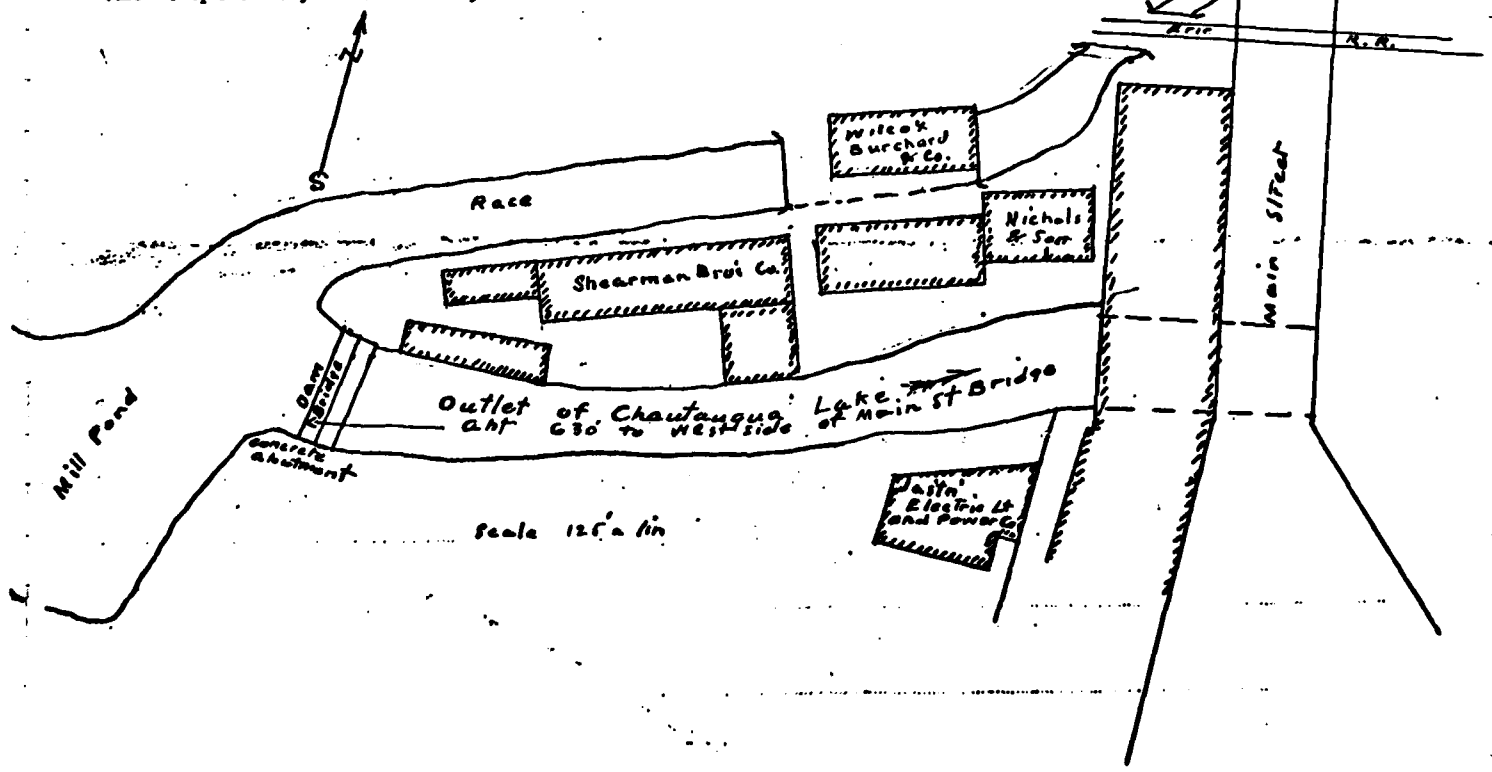 Erie R. R.
N
S
Wilcox
Burchard
& Co.
Race
Nichols
& Son
Main Street
Shearman Bros Co.
Dam
Bridge
Outlet of Chautauqua Lake
Abt 630' to West side of Main St Bridge
Concrete
abutment
Mill Pond
Jastn'
Electric Lt
and Power Co
Scale 125' a 1in